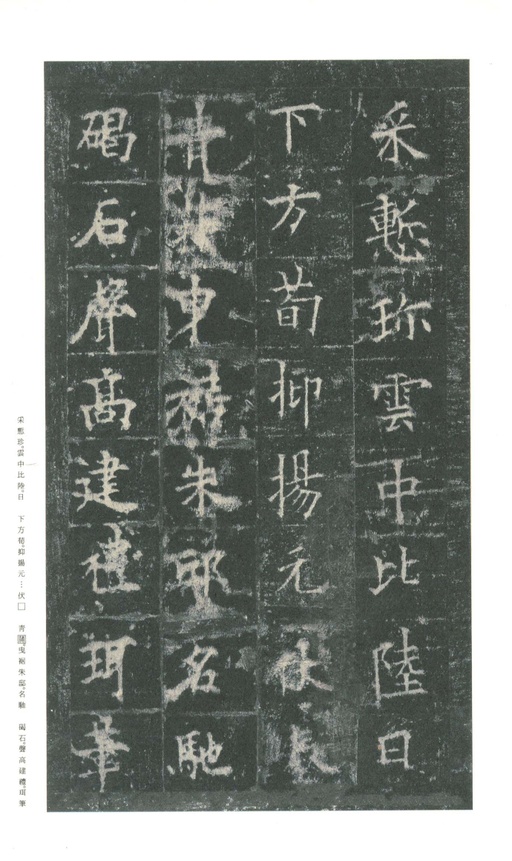 采慙珎雲中比陸日
下方荀抑揚元伏
曳裾朱邸名馳
碣石聲高建禮珥筆
采慙珍雲中比陸日　下方荀抑揚元…伏□　青闈曳裾朱邸名馳　碣石聲高建禮珥筆